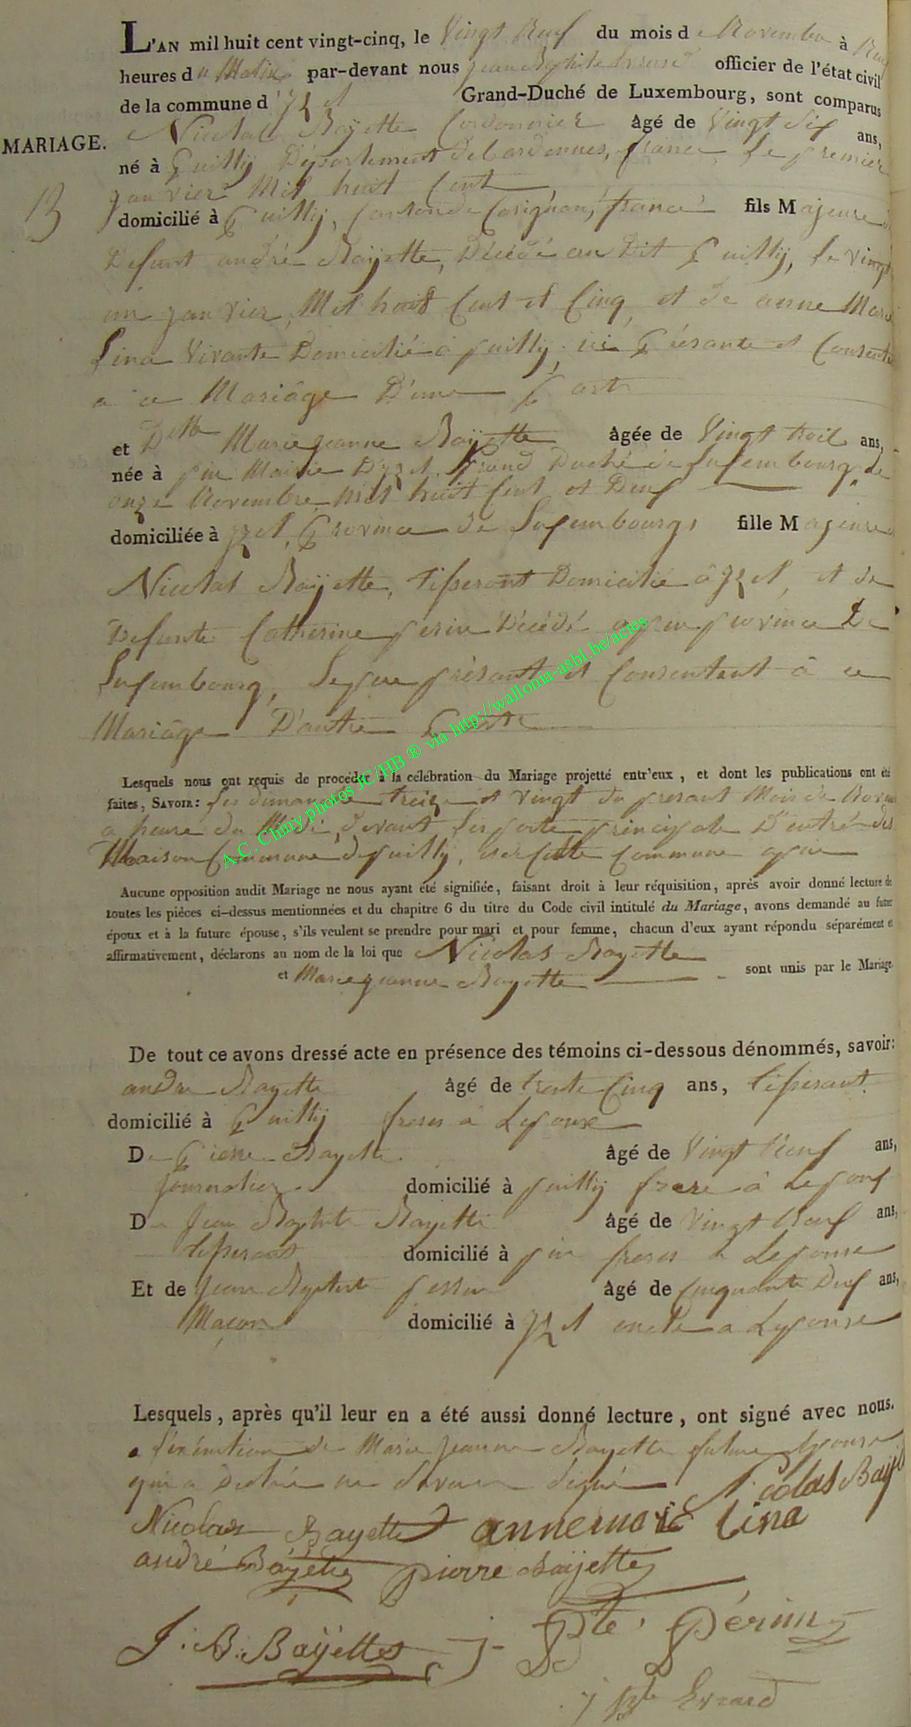 L'AN mil huit cent vingt-cinq, le Vingt Neuf du mois de Novembre à Neuf
heures du Matin par-devant nous jean Baptiste Evrard officier de l'état civil
de la commune d'Izel Grand-Duché de Luxembourg, sont comparus
Nicolas Baÿette Cordonnier âgé de Vingt Six ans,
MARIAGE.
né à Puilly Département des ardennes, france le premier
janvier Mil huit Cent
13
domicilié à Puilly, Canton de Carignan, france fils Majeure de
Defunt andré Baÿette, Décédé au Dit Puilly, le Vingt
un janvier Mil huit Cent et Cinq, et de anne Marie
Lina Vivante Domicilié à puilly, ici Présante et Consente
a ce Mariâge D'une Part
et Delle Mariejeanne Baÿette âgée de Vingt trois ans,
née à pin Mairie Dyzel, Grand Duché de Luxembourg, le
onze Novembre Mil huit Cent et Deux
domiciliée à yzel Province de Luxembourg, fille Majeure de
Nicolas Baÿette, tisserant Domicilié à yzel, et de
Defunte Catherine perin Décédé a pin province De
Luxembourg, Le pere présant et Consentant à ce
Mariâge D'autre Parte
Lesquels nous ont requis de procéder à la célébration du Mariage projetté entr'eux, et dont les publications ont été
faites, SAVOIR: les dimanche treize et vingt du présant Mois de
a heure du Midi, devant les porte principale D'entré des
Maison Commune de puilly, et
A.C. Chiny photos JC/HB ® via http://wallonia-asbl.be/actes
Aucune opposition audit Mariage ne nous ayant été signifiée, faisant droit à leur réquisition, après avoir donné lecture de
toutes les pièces ci-dessus mentionnées et du chapitre 6 du titre du Code civil intitulé du Mariage, avons demandé au futur
époux et à la future épouse, s'ils veulent se prendre pour mari et pour femme, chacun d'eux ayant répondu séparément et
affirmativement, déclarons au nom de la loi que Nicolas Bayette
et Mariejeanne Bayette sont unis par le Mariage.
De tout ce avons dressé acte en présence des témoins ci-dessous dénommés, savoir:
andre Bayette âgé de trente Cinq ans, tisserant
domicilié à Puilly freres a Lepoux
De Pierre Bayette âgé de Vingt Neuf ans,
journalier domicilié à puilly frere à Lepoux
De Jean Baptiste Bayette âgé de Vingt Neuf ans,
tisserant domicilié à pin freres a Lepouse
Et de Jean Baptiste perin âgé de Cinquante Deux ans,
Maçon domicilié à yzel oncle a Lepouse
Lesquels, après qu'il leur en a été aussi donné lecture, ont signé avec nous.
a de Marie jeanne Bayette future Epouse
qui a ne Savoir signé Nicolas Baÿ
Nicolas Bayette annemarie Lina
andré Bayette pierre Baÿette
J. B. Baÿettes J. Bte Périn
j Bte Evrard